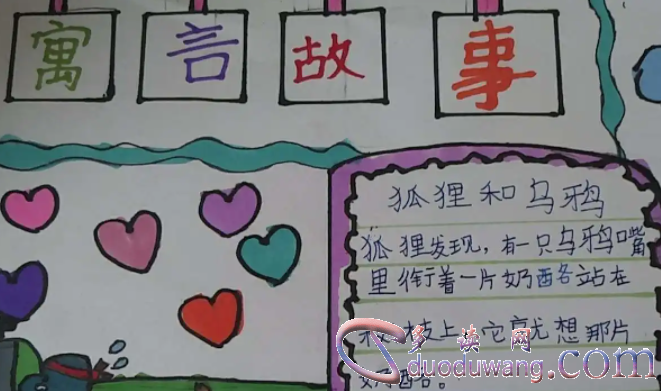 寓言故事
狐狸和乌鸦
狐狸发现，有一只乌鸦嘴
里衔着一片奶酉各站在
枝上，它就想那片
酉各。
多读网
duoduwang.com